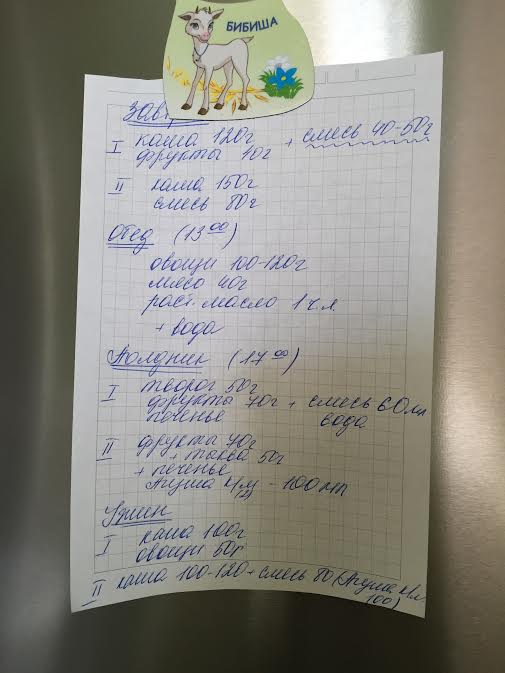 БИБИША
I каша 120г + смесь 40-50г
фрукты 70г
II каша 150г
смесь 80г
Обед (13 00)
овощи 100-120г
мясо 40г
раст. масло 1 ч.л.
+ вода
Полдник (17 00)
I творог 50г
фрукты 70г + смесь 60 мл
печенье вода
II фрукты 70г
+ тыква 50г
+ печенье
Агуша к/м - 100 мл
Ужин
I каша 100г
овощи 50г
II каша 100-120 + смесь 80 (Агуша к/м
100)